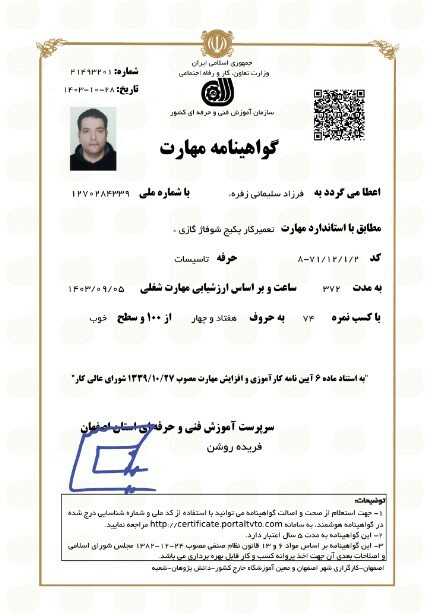 جمهوری اسلامی ایران
وزارت تعاون، کار و رفاه اجتماعی
سازمان آموزش فنی و حرفه ای کشور
شماره: ۲۱۴۹۳۲۰۱
تاریخ: ۱۴۰۳-۱۰-۲۸
گواهینامه مهارت
اعطا می گردد به فرزاد سلیمانی زفره. با شماره ملی ۱۲۷۰۲۸۴۳۳۹
مطابق با استاندارد مهارت تعمیرکار پکیج شوفاژ گازی ،
کد ۸-۷۱/۱۲/۱/۲ حرفه تاسیسات
به مدت ۳۷۲ ساعت و بر اساس ارزشیابی مهارت شغلی ۱۴۰۳/۰۹/۰۵
با کسب نمره ۷۴ به حروف هفتاد و چهار از ۱۰۰ و سطح خوب
"به استناد ماده ۶ آیین نامه کارآموزی و افزایش مهارت مصوب ۱۳۳۹/۱۰/۲۷ شورای عالی کار"
سرپرست آموزش فنی و حرفه ای استان اصفهان
فریده روشن
توضیحات:
۱- جهت استعلام از صحت و اصالت گواهینامه می توانید با استفاده از کد ملی و شماره شناسایی درج شده
در گواهینامه هوشمند، به سامانه http://certificate.portaltvto.com مراجعه نمایید.
۲- این گواهینامه به مدت ۵ سال اعتبار دارد.
۳- این گواهینامه بر اساس مواد ۶ و ۱۳ قانون نظام صنفی مصوب ۲۴-۱۲-۱۳۸۲ مجلس شورای اسلامی
و اصلاحات بعدی آن جهت اخذ پروانه کسب و کار قابل بهره برداری می باشد.
اصفهان-کارگزاری شهر اصفهان و معین آموزشگاه خارج کشور-دانش پژوهان-شعبه